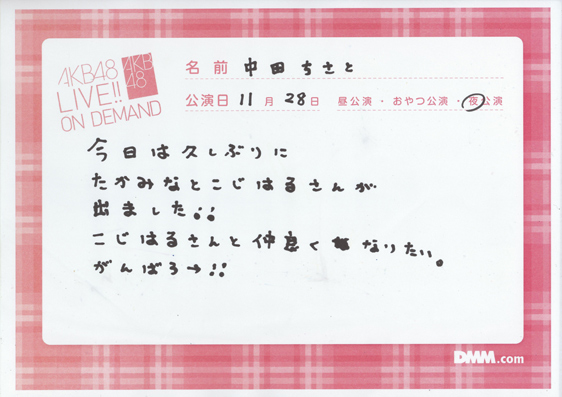 AKB48
LIVE!!
ON DEMAND
AKB
48
名前 中田ちさと
公演日 11月28日 昼公演・おやつ公演・夜公演
今日は久しぶりに
たかみなとこじはるさんが
出ました!!
こじはるさんと仲良くなりたい。
がんばろ→!!
DMM.com